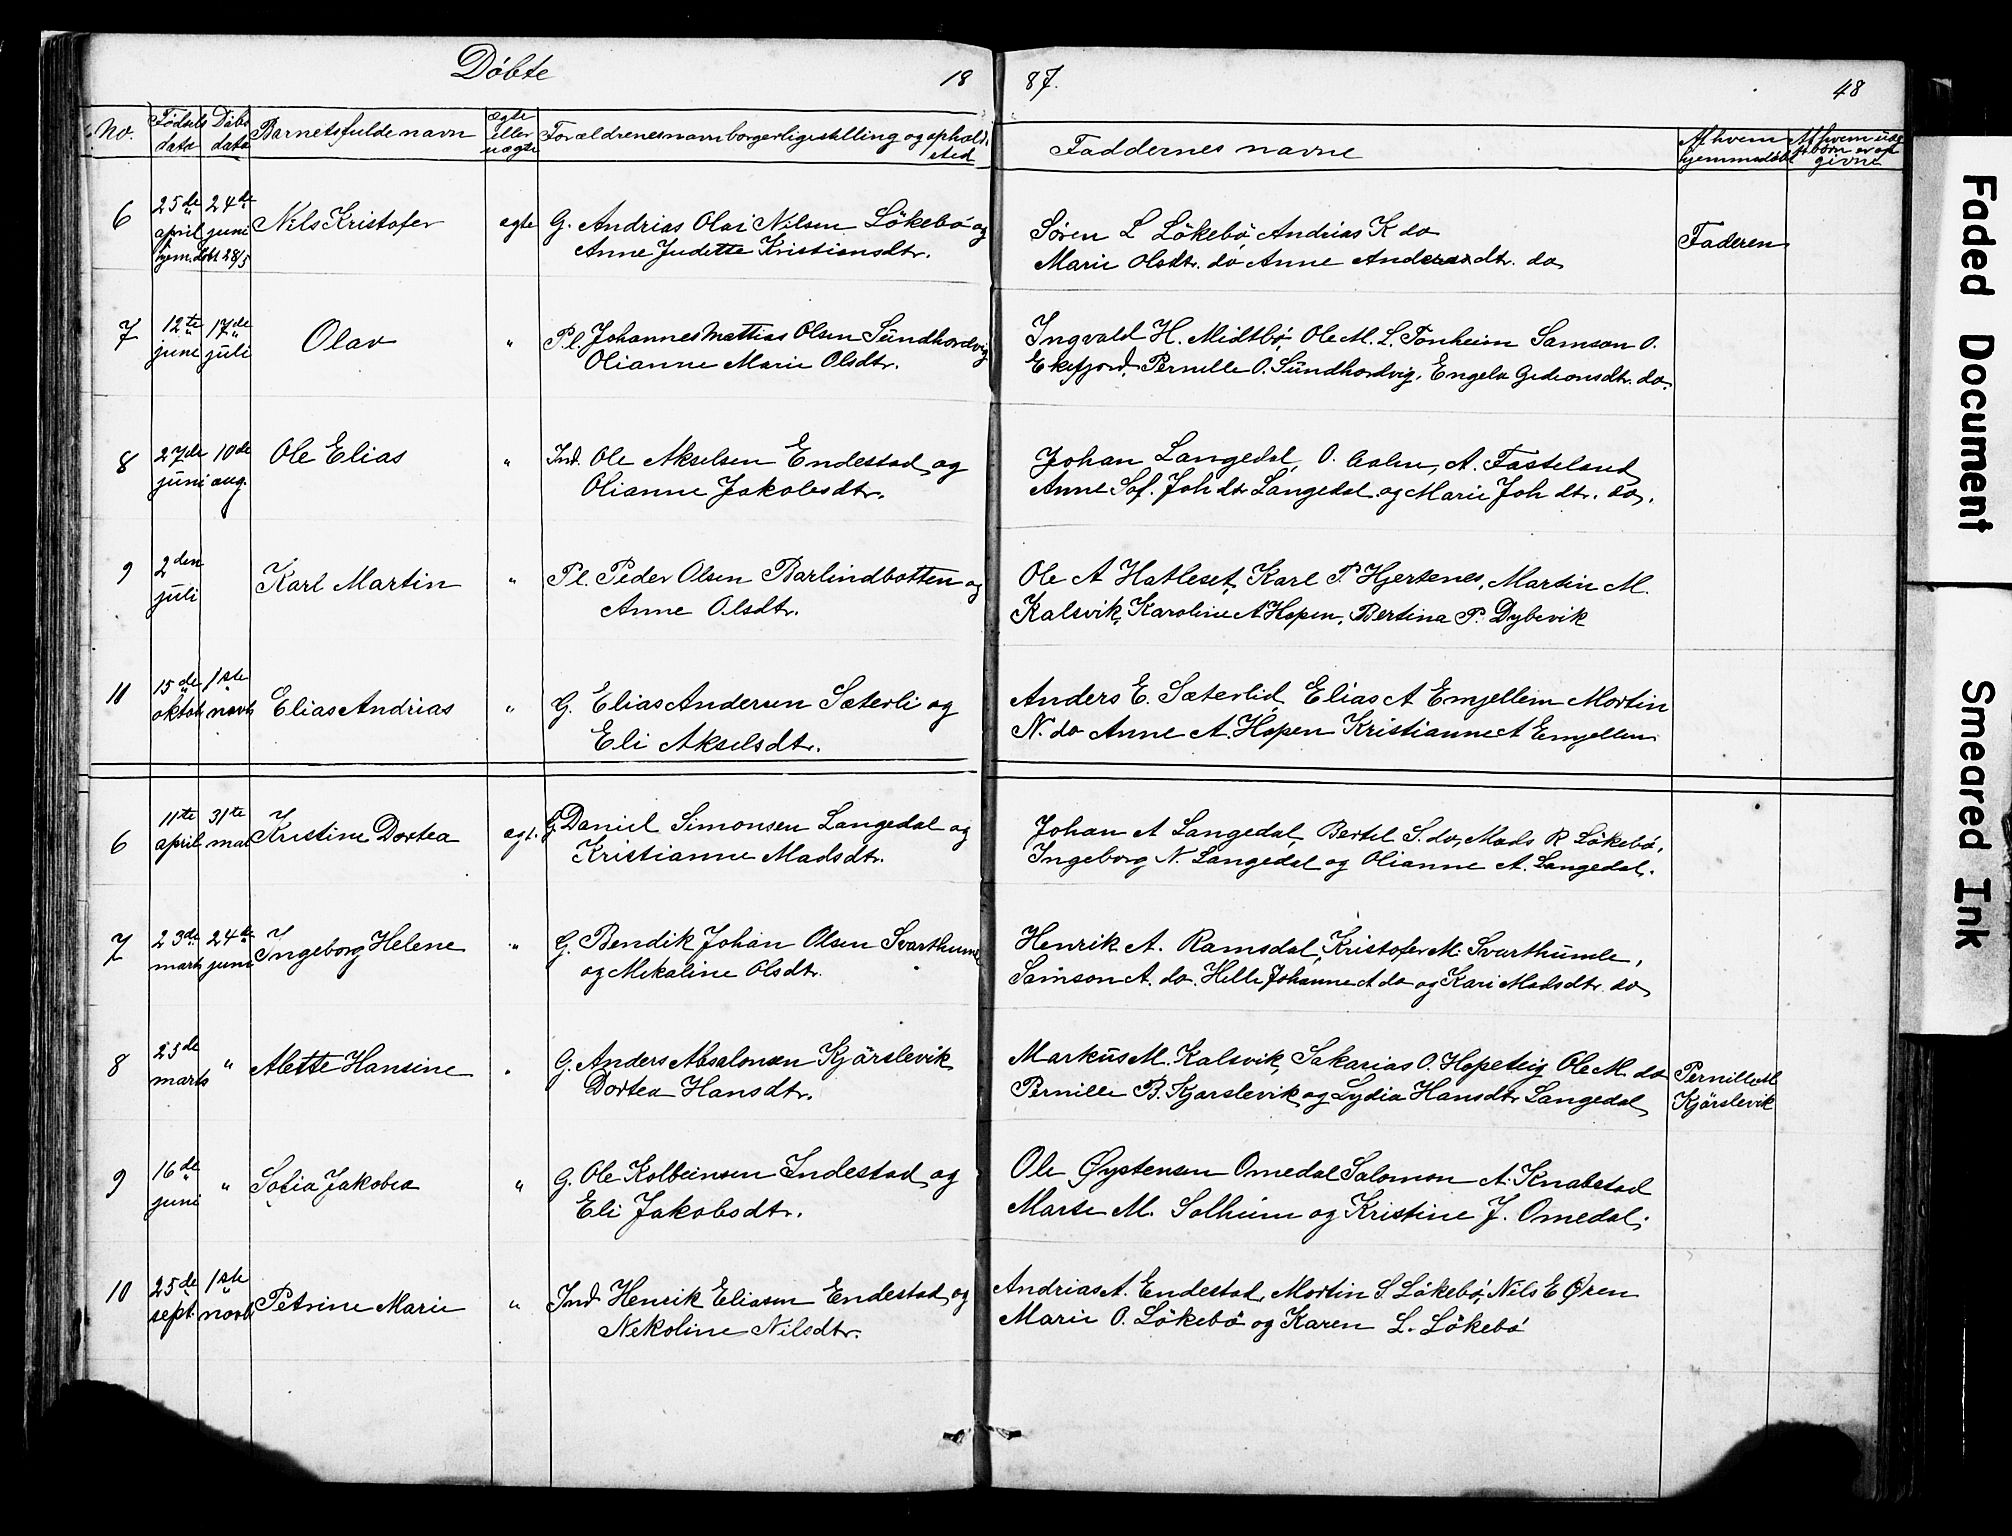 Döbte 18 87. 48
No. Fødsels data Döbs data Barnets fulde navn ægte eller uægte Forældrenes navn borgerlige stilling og opholdssted Faddernes navne Af hvem hjemmedøbt Af hvem
givne
6 25de april 24de juni Nils Kristofer egte G. Andrias Olai Nilsen Lökebö og Søren L Lökebö, Andrias K do Faderen
hjem. döbt 28/5 Anne Judette Kristiansdtr. Marie Olsdtr. do Anne Andersdtr. do
7 12te juni 17de juli Olav " Pl. Johannes Mattias Olsen Sundhordvig Ingvald H. Midtbö, Ole M. L. Tonheim Samson O.
Olianne Marie Olsdtr. Ekefjord, Pernille O. Sundhordvig, Engela Gedionsdtr. do.
8 27de juni 10de aug. Ole Elias " Ind. Ole Akselsen Endestad og Johan Langedal, O. Aalen, A. Fasteland
Olianne Jakobsdtr. Anne Sof. Joh dtr Langedal og Marie Joh dtr. do.
9 2den juli Karl Martin " Pl. Peder Olsen Barlindbotten og Ole A Hatleset, Karl P. Hjertenes, Martin M.
Anne Olsdtr. Kalsvik, Karoline A Hopen, Bertina P. Dybevik
11 15de oktob. 1ste novb Elias Andrias " G. Elias Andersen Sæterli og Anders E. Sæterlid, Elias A Emjellem Mortin
Eli Akselsdtr. N. do Anne A. Hopen Kristianne A Emjellem
6 11te april 31te mai Kristine Dortea egt. G Daniel Simonsen Langedal og Johan A Langedal, Bertel S. do, Mads R Lökebö,
Kristianne Madsdtr. Ingeborg N. Langedal og Olianne A. Langedal.
7 23de marts 24de juni Ingeborg Helene " G. Bendik Johan Olsen Svarthumle Henrik A. Ramsdal, Kristofer M. Svarthumle,
og Mekaline Olsdtr. Samson A. do. Helle Johanne A do og Kari Madsdtr. do
8 25de marts " Alette Hansine " G. Anders Absalonsen Kjörslevik Markus M. Kalsvik, Sakarias O. Hopeteig Ole M. do Pernille M
Dortea Hansdtr. Pernille B. Kjørslevik og Lydia Hansdtr Langedal Kjörslevik
9 16de juni " Sofia Jakobea " G. Ole Kolbeinsen Indestad og Ole Øystensen Omedal Salomon A. Knabestad
Eli Jakobsdtr. Marte M. Solheim og Kristine J. Omedal.
10 25de sept. 1ste novb Petrine Marie " Ind. Henrik Eliasen Endestad og Andrias A. Endestad, Mortin S Lökebö, Nils E Øren
Nekoline Nilsdtr. Marie O. Lökebö og Karen L. Lökebö
Faded Document
Smeared Ink